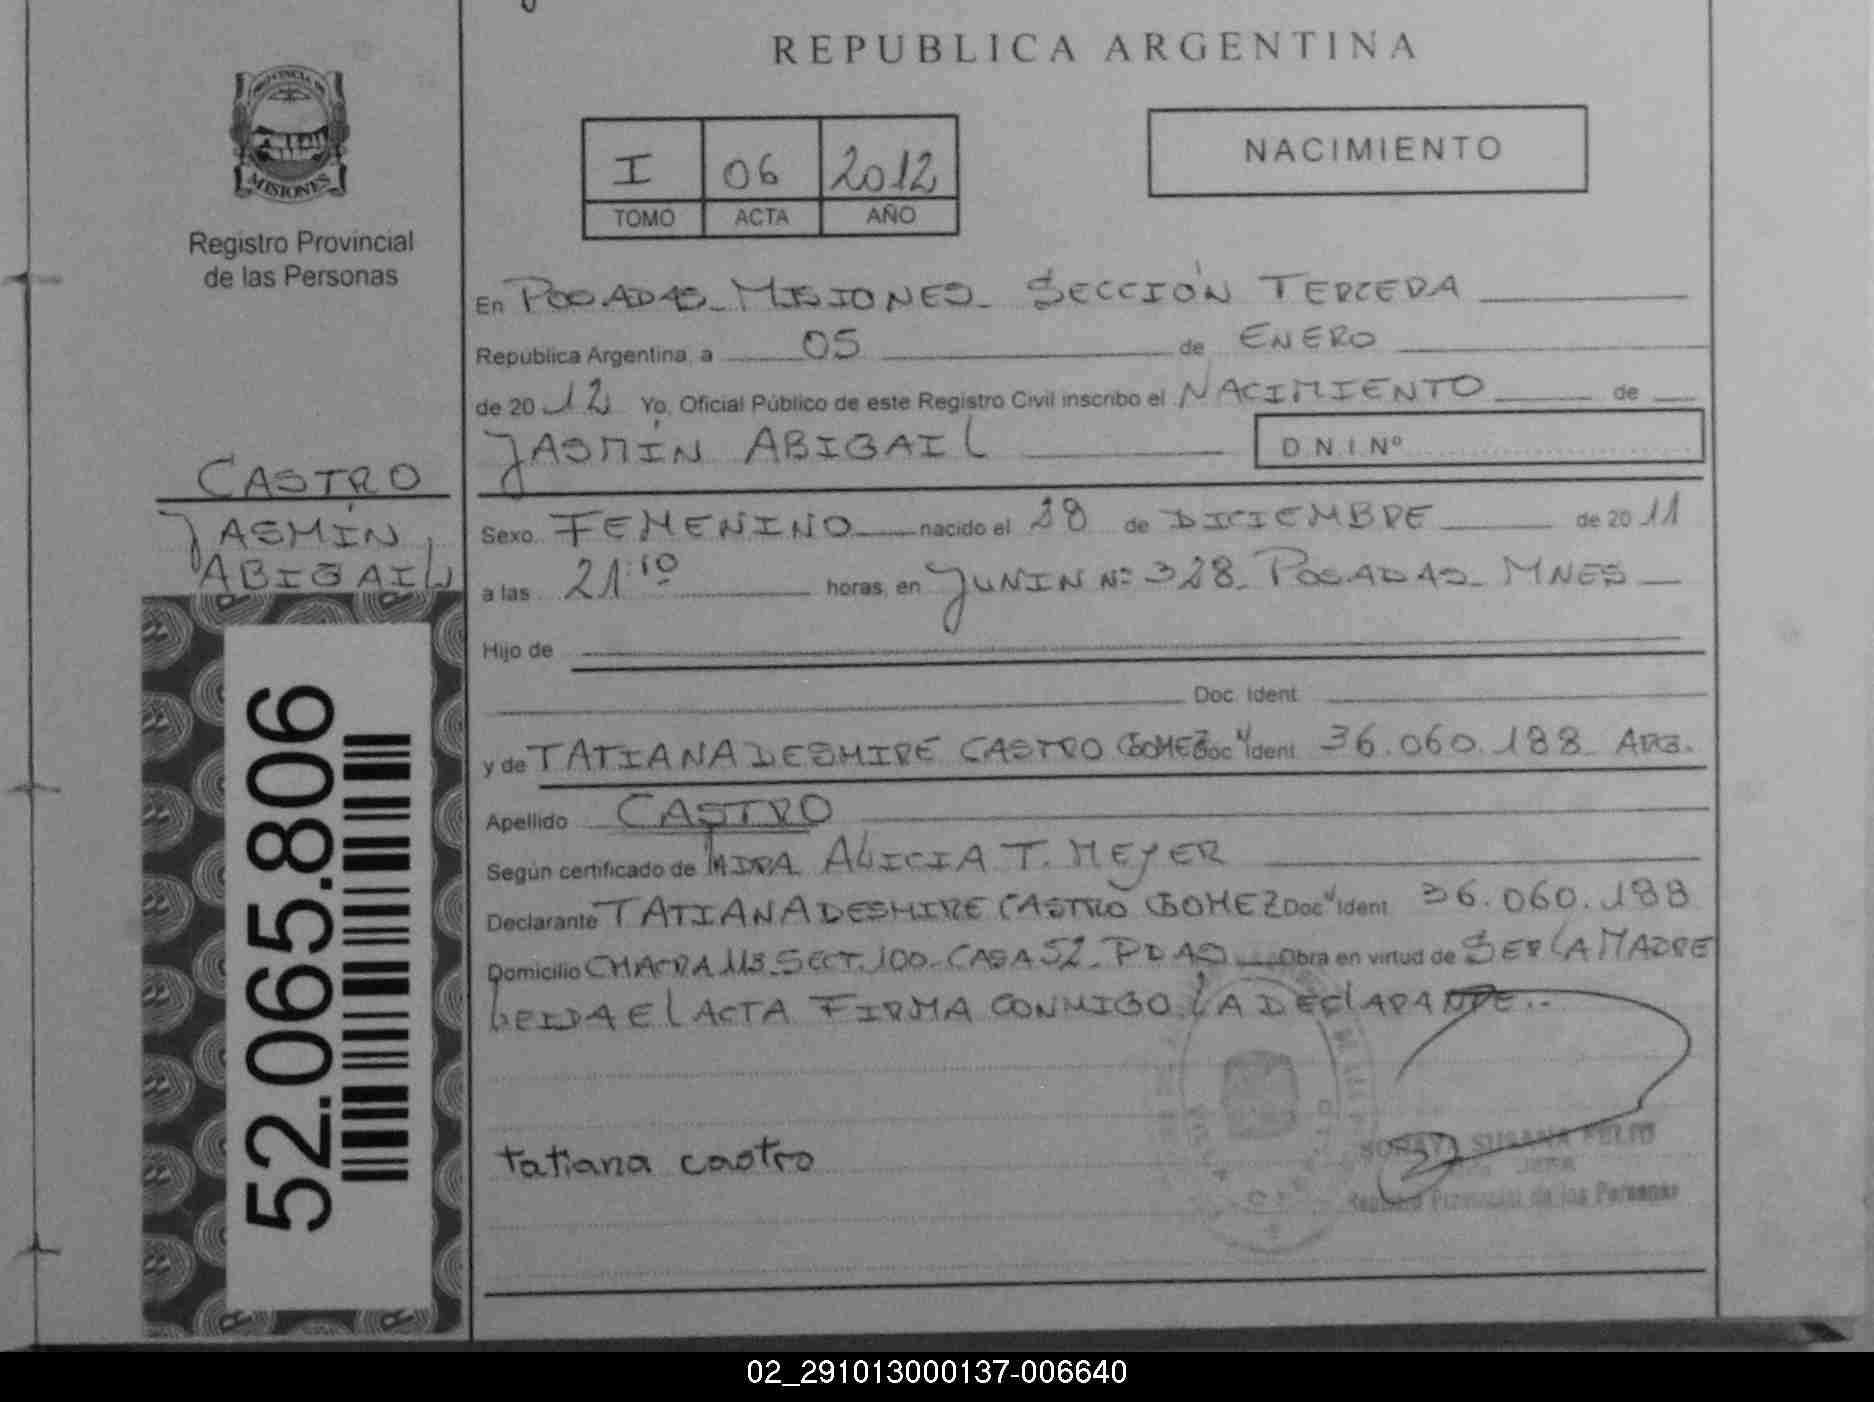 REPUBLICA ARGENTINA
PROVINCIA DE
MISIONES
Registro Provincial
de las Personas
I 06 2012
TOMO ACTA AÑO
NACIMIENTO
En POSADAS - MISIONES - SECCIÓN TERCERA
República Argentina, a 05 de ENERO
de 2012 Yo, Oficial Público de este Registro Civil inscribo el NACIMIENTO de
JASMÍN ABIGAIL D.N.I.Nº
CASTRO
JASMÍN
ABIGAIL
Sexo FEMENINO nacido el 28 de DICIEMBRE de 2011
a las 21:10 horas, en JUNIN Nº 328 - POSADAS - MNES
Hijo de
Doc. Ident.
y de TATIANA DESMIRE CASTRO GOMEZ Doc. Ident. 36.060.188 ARG.
Apellido CASTRO
Según certificado de ALICIA T. MEYER
Declarante TATIANA DESMIRE CASTRO GOMEZ Doc. Ident. 36.060.188
Domicilio CHACRA 113 - SECT. 100 - CASA 52 - PDAS Obra en virtud de SER LA MADRE
LEIDA EL ACTA FIRMA CONMIGO LA DECLARANTE..
tatiana castro
SORAYA SUSANA
JEFA
Registro Provincial de las Personas
52.065.806
02_291013000137-006640